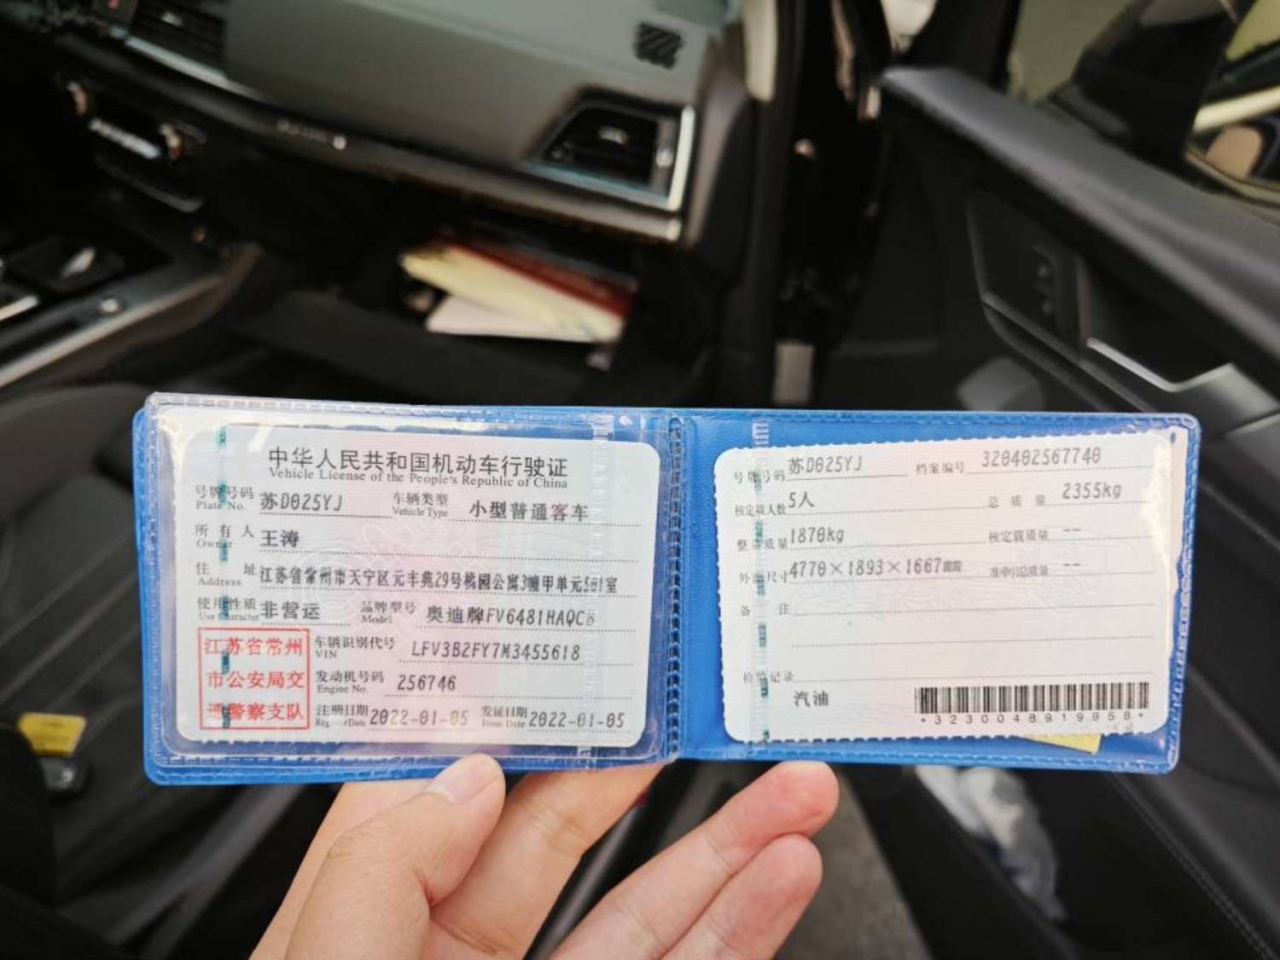 中华人民共和国机动车行驶证
Vehicle License of the People's Republic of China
号牌号码 苏D025YJ 车辆类型 小型普通客车
Plate No. Vehicle Type
所有人 王涛
Owner
住址 江苏省常州市天宁区元丰苑29号桃园公寓3幢甲单元501室
Address
使用性质 非营运 品牌型号 奥迪牌FV6481HAQCG
Use Character Model
江苏省常州
市公安局交
通警察支队
车辆识别代号 LFV3B2FY7M3455618
VIN
发动机号码 256746
Engine No.
注册日期 2022-01-05 发证日期 2022-01-05
Register Date Issue Date
号牌号码 苏D025YJ 档案编号 320402567740
核定载人数 5人 总质量 2355kg
整备质量 1870kg 核定载质量 --
外廓尺寸 4770×1893×1667mm 准牵引总质量 --
备注
检验记录
汽油
*3230048919958*